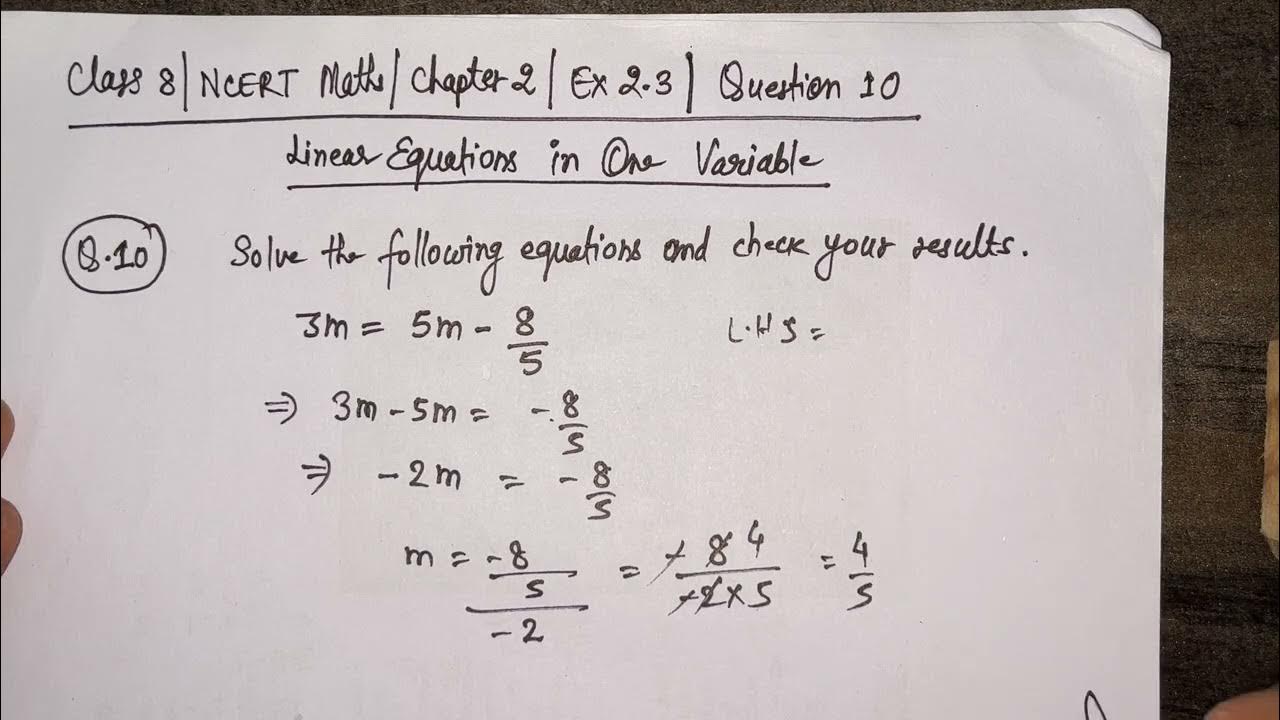 Class 8 | NCERT Maths | Chapter 2 | Ex 2.3 | Question 10
Linear Equations in One Variable
Q.10 Solve the following equations and check your results.
3m = 5m - 8/5 L.H.S =
⇒ 3m - 5m = - 8/5
⇒ - 2m = - 8/5
m = -8/5 / -2 = -8 4 / -2×5 = 4/5